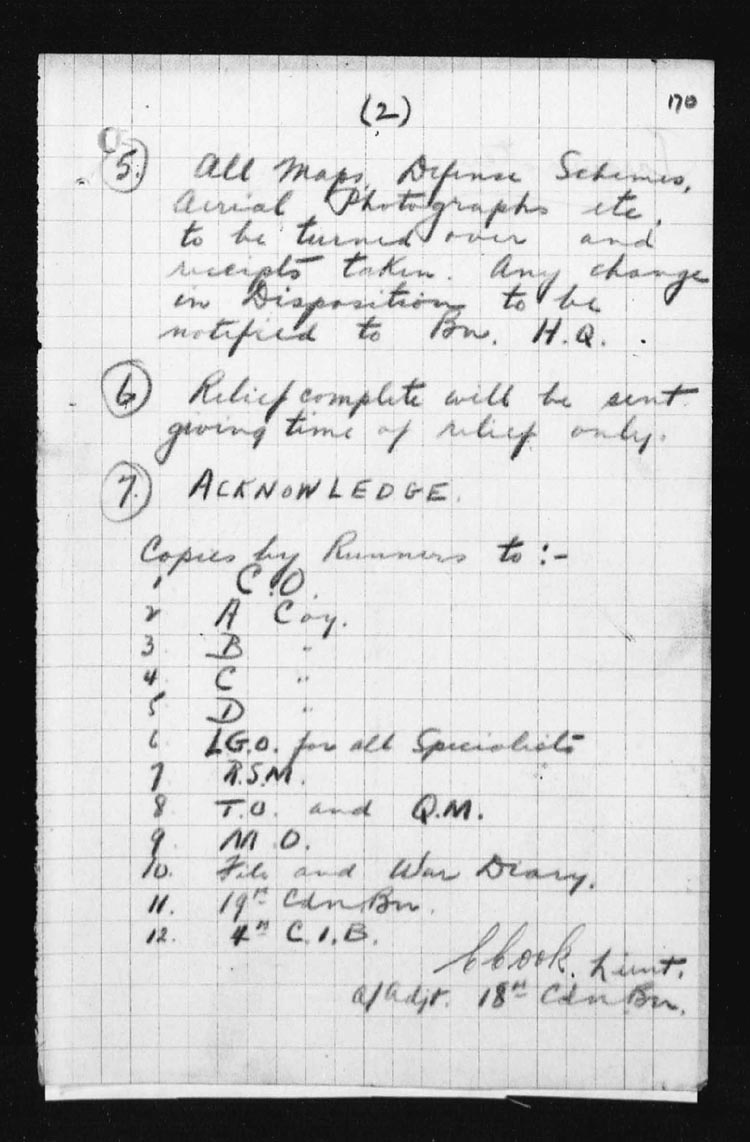 (2)
170
5. All Maps, Defense Schemes,
Aerial Photographs etc.
to be turned over and
receipts taken. Any change
in Disposition to be
notified to Bn. H.Q.
6 Relief complete will be sent
giving time of relief only.
7. ACKNOWLEDGE.
Copies by Runners to :-
1 C.O.
2 A Coy.
3 B "
4 C "
5 D "
6 L.G.O. for all Specialists
7 R.S.M.
8 T.O. and Q.M.
9 M.O.
10. File and War Diary.
11. 19th Cdn Bn.
12. 4th C.I.B.
Cook. Lieut.
a/Adjt. 18th Cdn Bn.